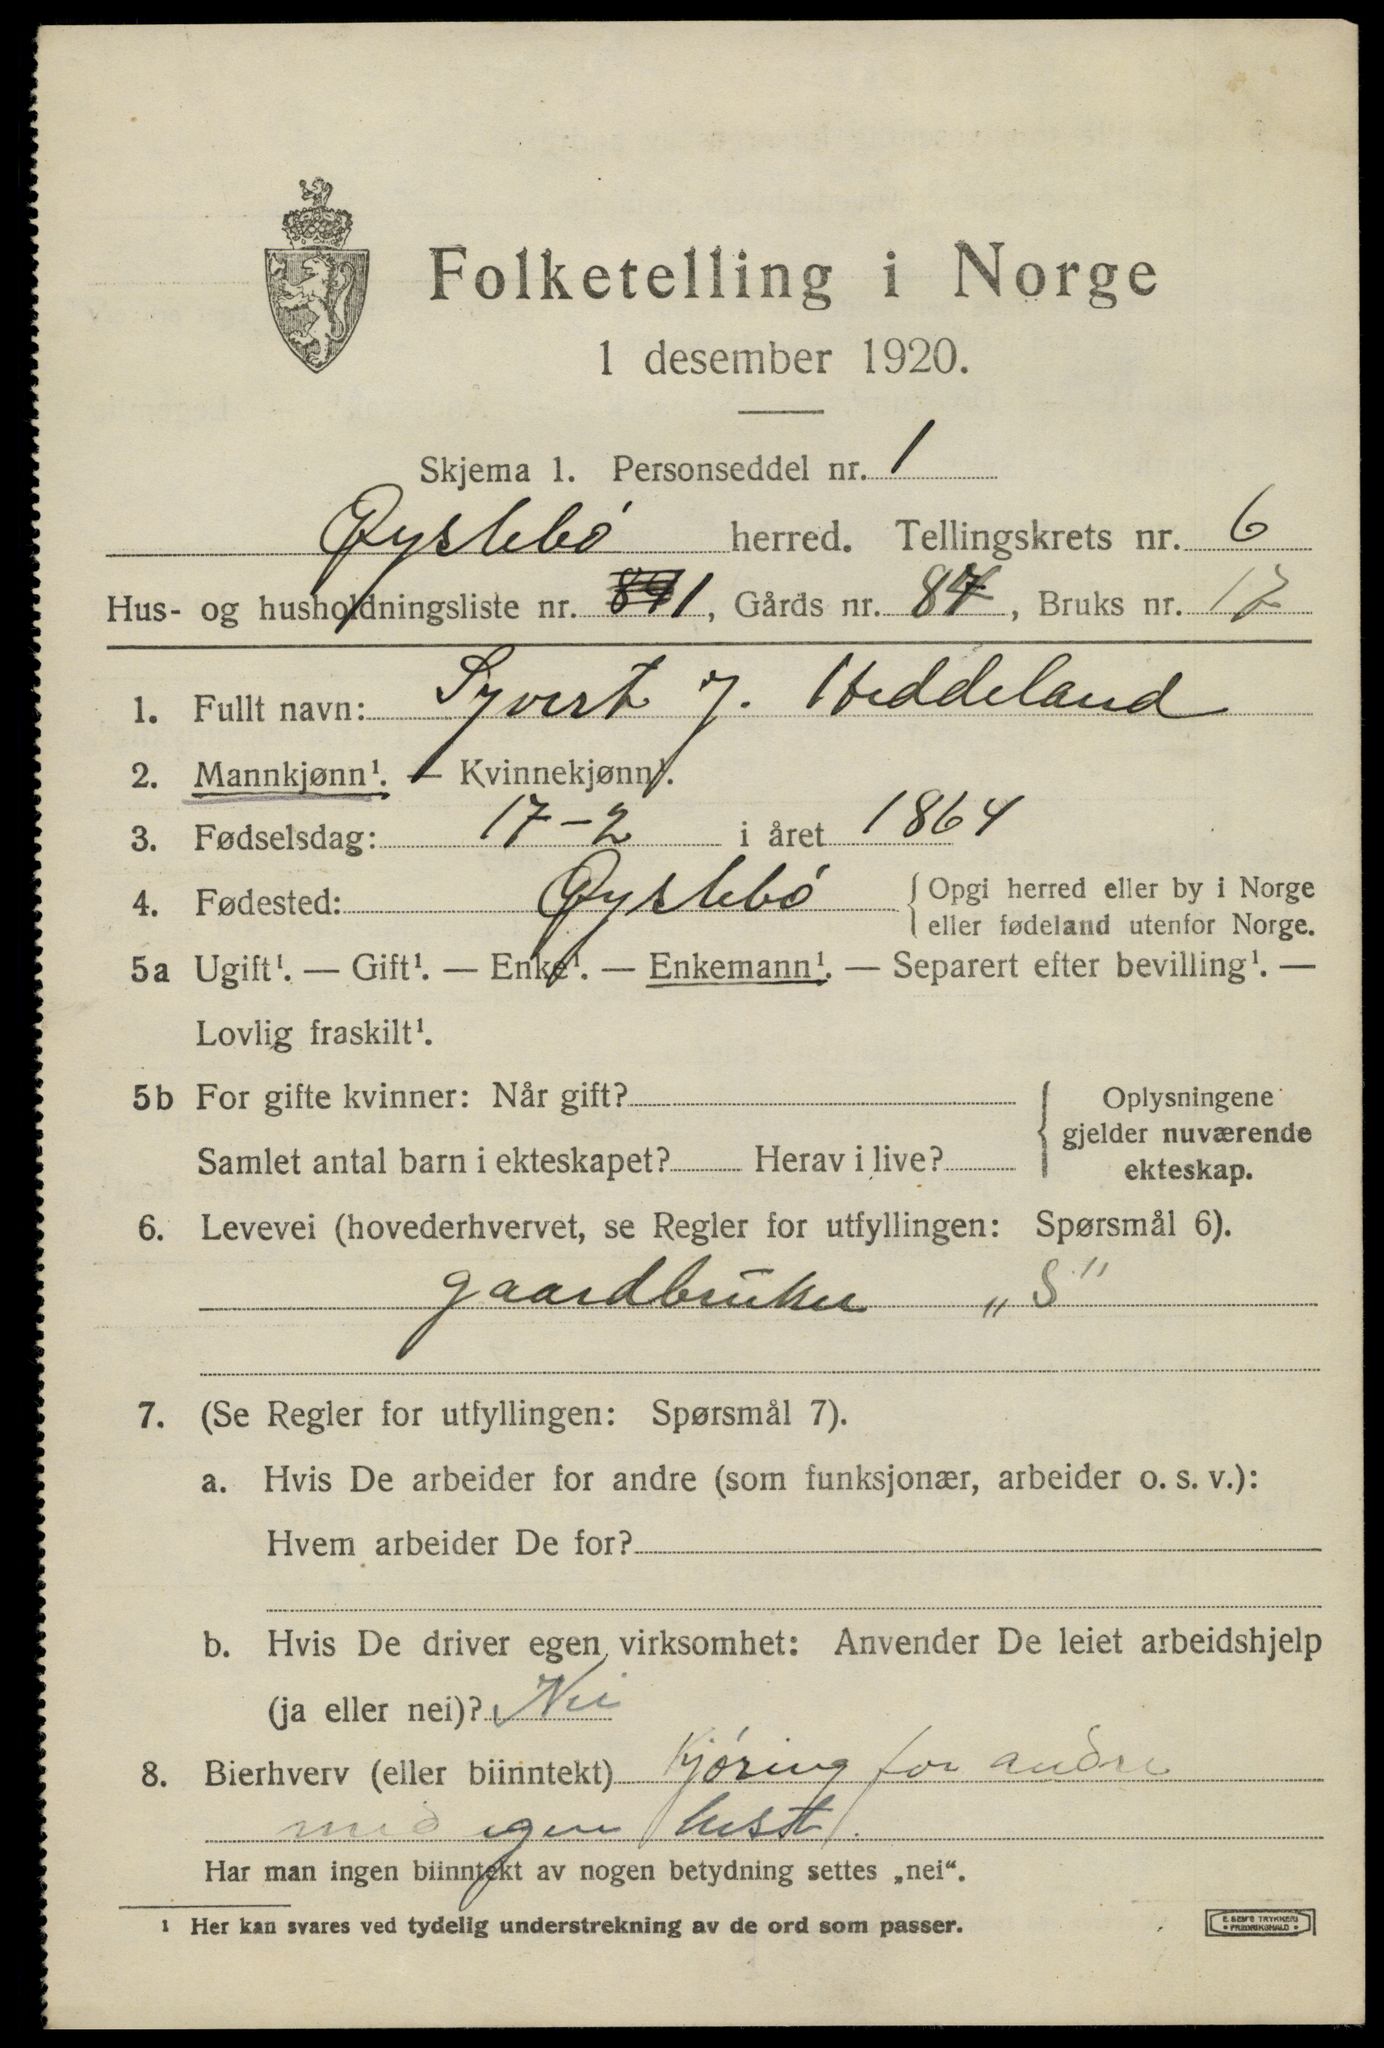 Folketelling i Norge
1 desember 1920.
Skjema 1. Personseddel nr. 1
Øyslebø herred. Tellingskrets nr. 6
Hus- og husholdningsliste nr. 1, Gårds nr. 87, Bruks nr. 12
1. Fullt navn: Syvert J. Heddeland
2. Mannkjønn¹. — Kvinnekjønn¹.
3. Fødselsdag: 17-2 i året 1864
4. Fødested: Øyslebø { Opgi herred eller by i Norge
eller fødeland utenfor Norge.
5a Ugift¹. — Gift¹. — Enke¹. — Enkemann¹. — Separert efter bevilling¹. —
Lovlig fraskilt¹.
5b For gifte kvinner: Når gift? { Oplysningene
gjelder nuværende
Samlet antal barn i ekteskapet? Herav i live?
ekteskap.
6. Levevei (hovederhvervet, se Regler for utfyllingen: Spørsmål 6).
gaardbruker „S"
7. (Se Regler for utfyllingen: Spørsmål 7).
a. Hvis De arbeider for andre (som funksjonær, arbeider o. s. v.):
Hvem arbeider De for?
b. Hvis De driver egen virksomhet: Anvender De leiet arbeidshjelp
(ja eller nei)? Nei
8. Bierhverv (eller biinntekt) Kjøring for andre
med egen hest.
Har man ingen biinntekt av nogen betydning settes „nei“.
¹ Her kan svares ved tydelig understrekning av de ord som passer.
E. SEM'S TRYKKERI
• FREDRIKSHALD •